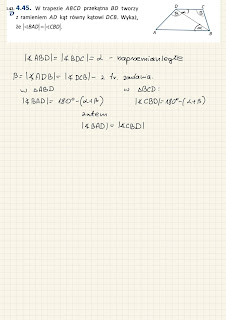 4.45. W trapezie ABCD przekątna BD tworzy
D
z ramieniem AD kąt równy kątowi DCB. Wykaż,
że |∢BAD|=|∢CBD|.
D C
A B
|∢ABD|=|∢BDC|=α - naprzemianległe
β=|∢ADB|=|∢DCB| - z tr. zadania.
w △ABD w △BCD
|∢BAD|=180°-(α+β) |∢CBD|=180°-(α+β)
zatem
|∢BAD|=|∢CBD|